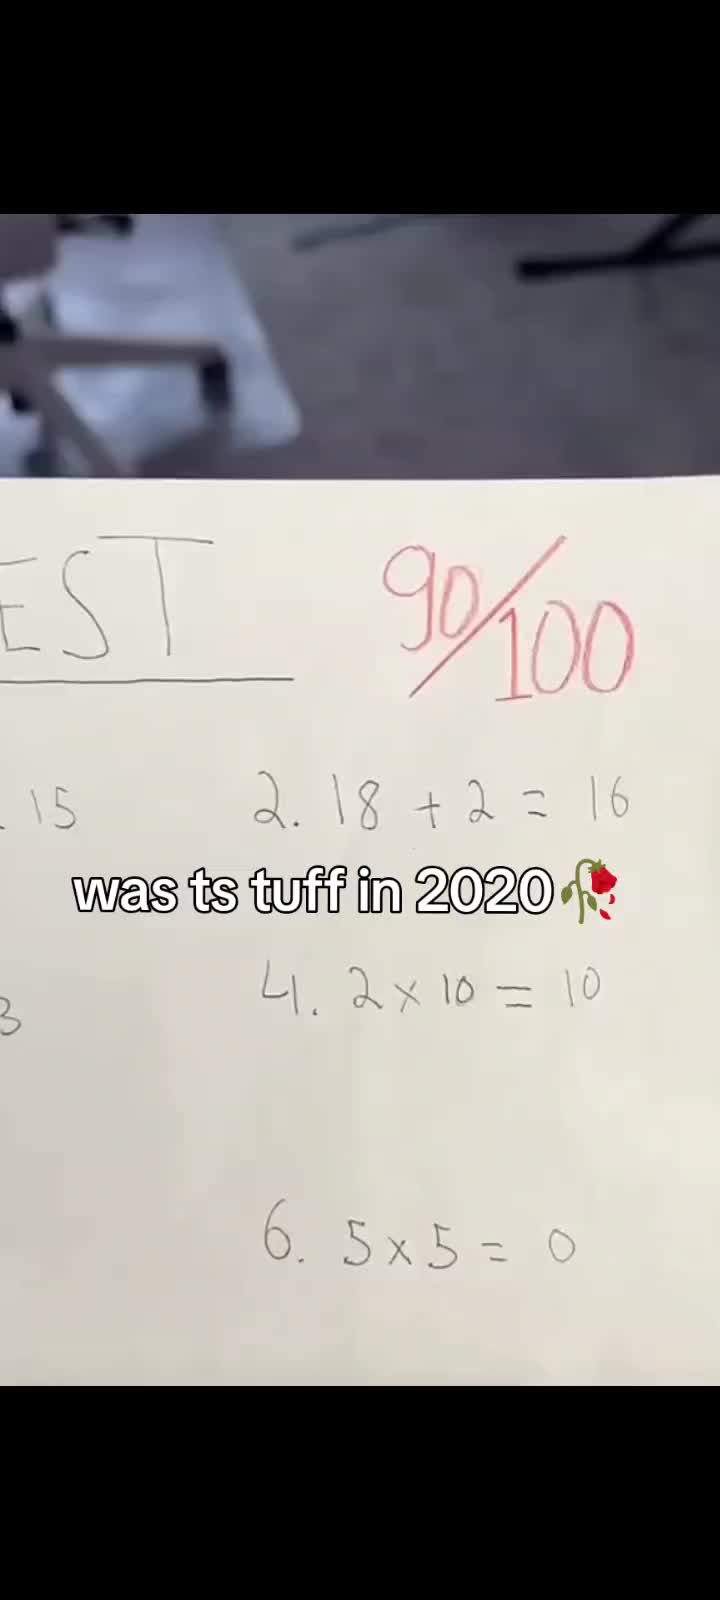 EST
90/100
. 15
2. 18 + 2 = 16
was ts tuff in 2020🥀
4. 2 × 10 = 10
3
6. 5 × 5 = 0